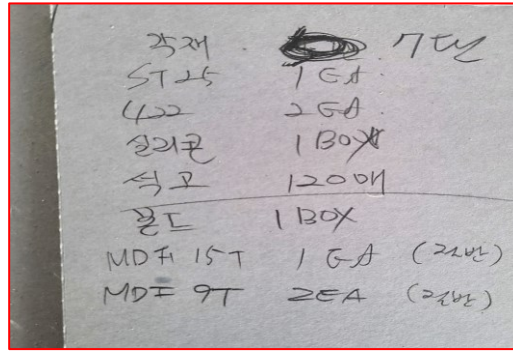 각재 7단
ST25 1EA
422 2EA
실리콘 1BOX
석고 120매
본드 1BOX
MDF 15T 1EA (절반)
MDF 9T 2EA (절반)